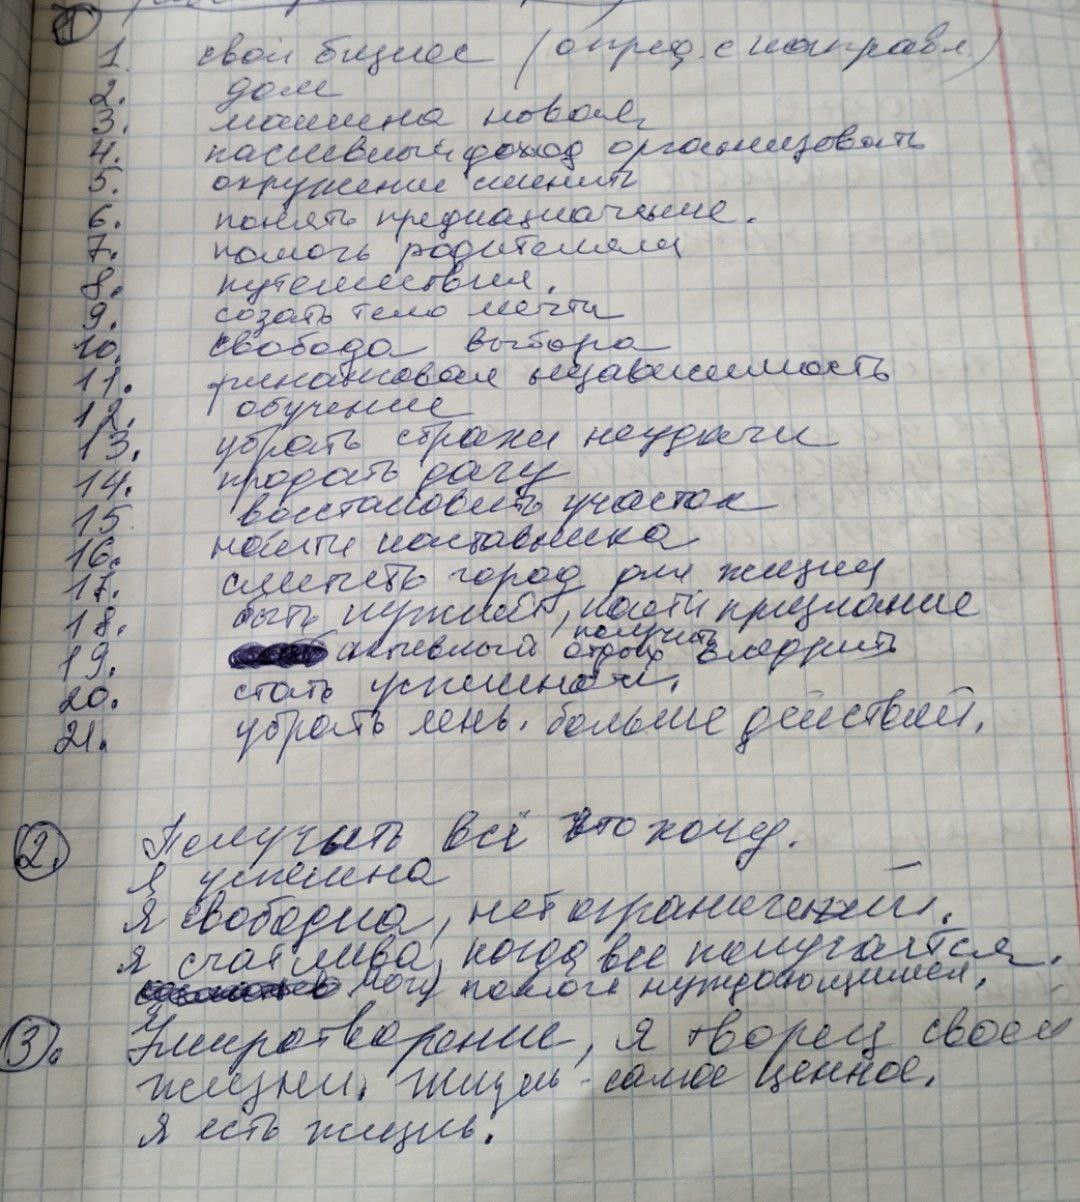 1
1. свой бизнес (опред. с направл.)
2. дом
3. машина новая
4. пассивный доход организовать
5. окружение сменить
6. понять предназначение.
7. помочь родителям
8. путешествия.
9. создать тело мечты
10. свобода выбора
11. финансовая независимость
12. обучение
13. убрать страхи неудачи
14. продать дачу
15. восстановить участок
16. найти наставника
17. сменить город для жизни
18. быть нужной, найти признание
получить
19. активный отдых внедрить
20. стать успешной.
21. убрать лень. больше действий.
2. Получить всё что хочу.
я успешна
я свободна, нет ограничений.
я счастлива, когда все получается.
могу помочь нуждающимся.
3. Умиротворение, я творец своей
жизни. Жизнь - самое ценное.
я есть жизнь.